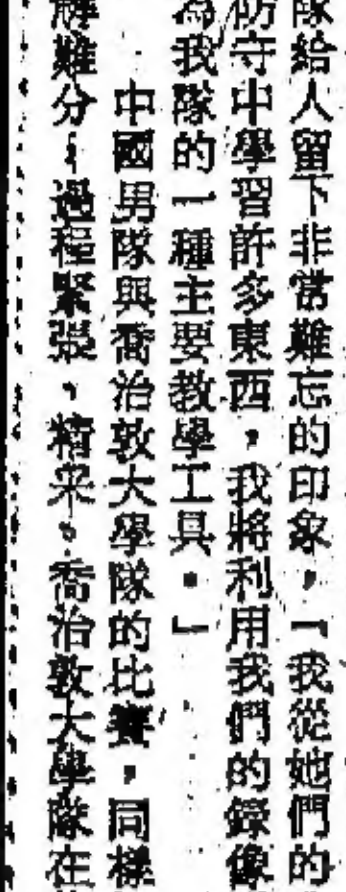 隊給人留下非常難忘的印象，「我從她們的
防守中學習許多東西，我將利用我們的錄像
為我隊的一種主要教學工具。」
中國男隊與喬治敦大學隊的比賽，同樣
解難分；過程緊張、精采。喬治敦大學隊在